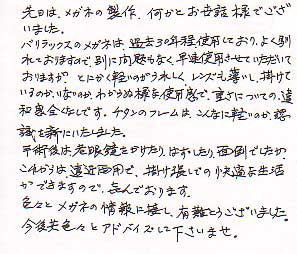 先日は、メガネの製作、何かとお世話様でござ
いました。
バリラックスのメガネは、過去30年程使用しており、よく馴
れておりますので、別に問題もなく早速使用させていただいて
おりますが、とにかく軽いのがうれしく、レンズも薄いし、掛けて
いるのか、いないのか、わからぬ様な使用感で、重さについての、違
和感全くなしです。チタンのフレームは、こんなに軽いのか、認
識を新にいたしました。
手術後は、老眼鏡をかけたり、はずしたり、面倒でしたが、
これからは、遠近両用で、掛け通しでの快適な生活
ができますので、喜んでおります。
色々とメガネの情報に接し、有難とうございました。
今後共色々とアドバイスして下さいませ。